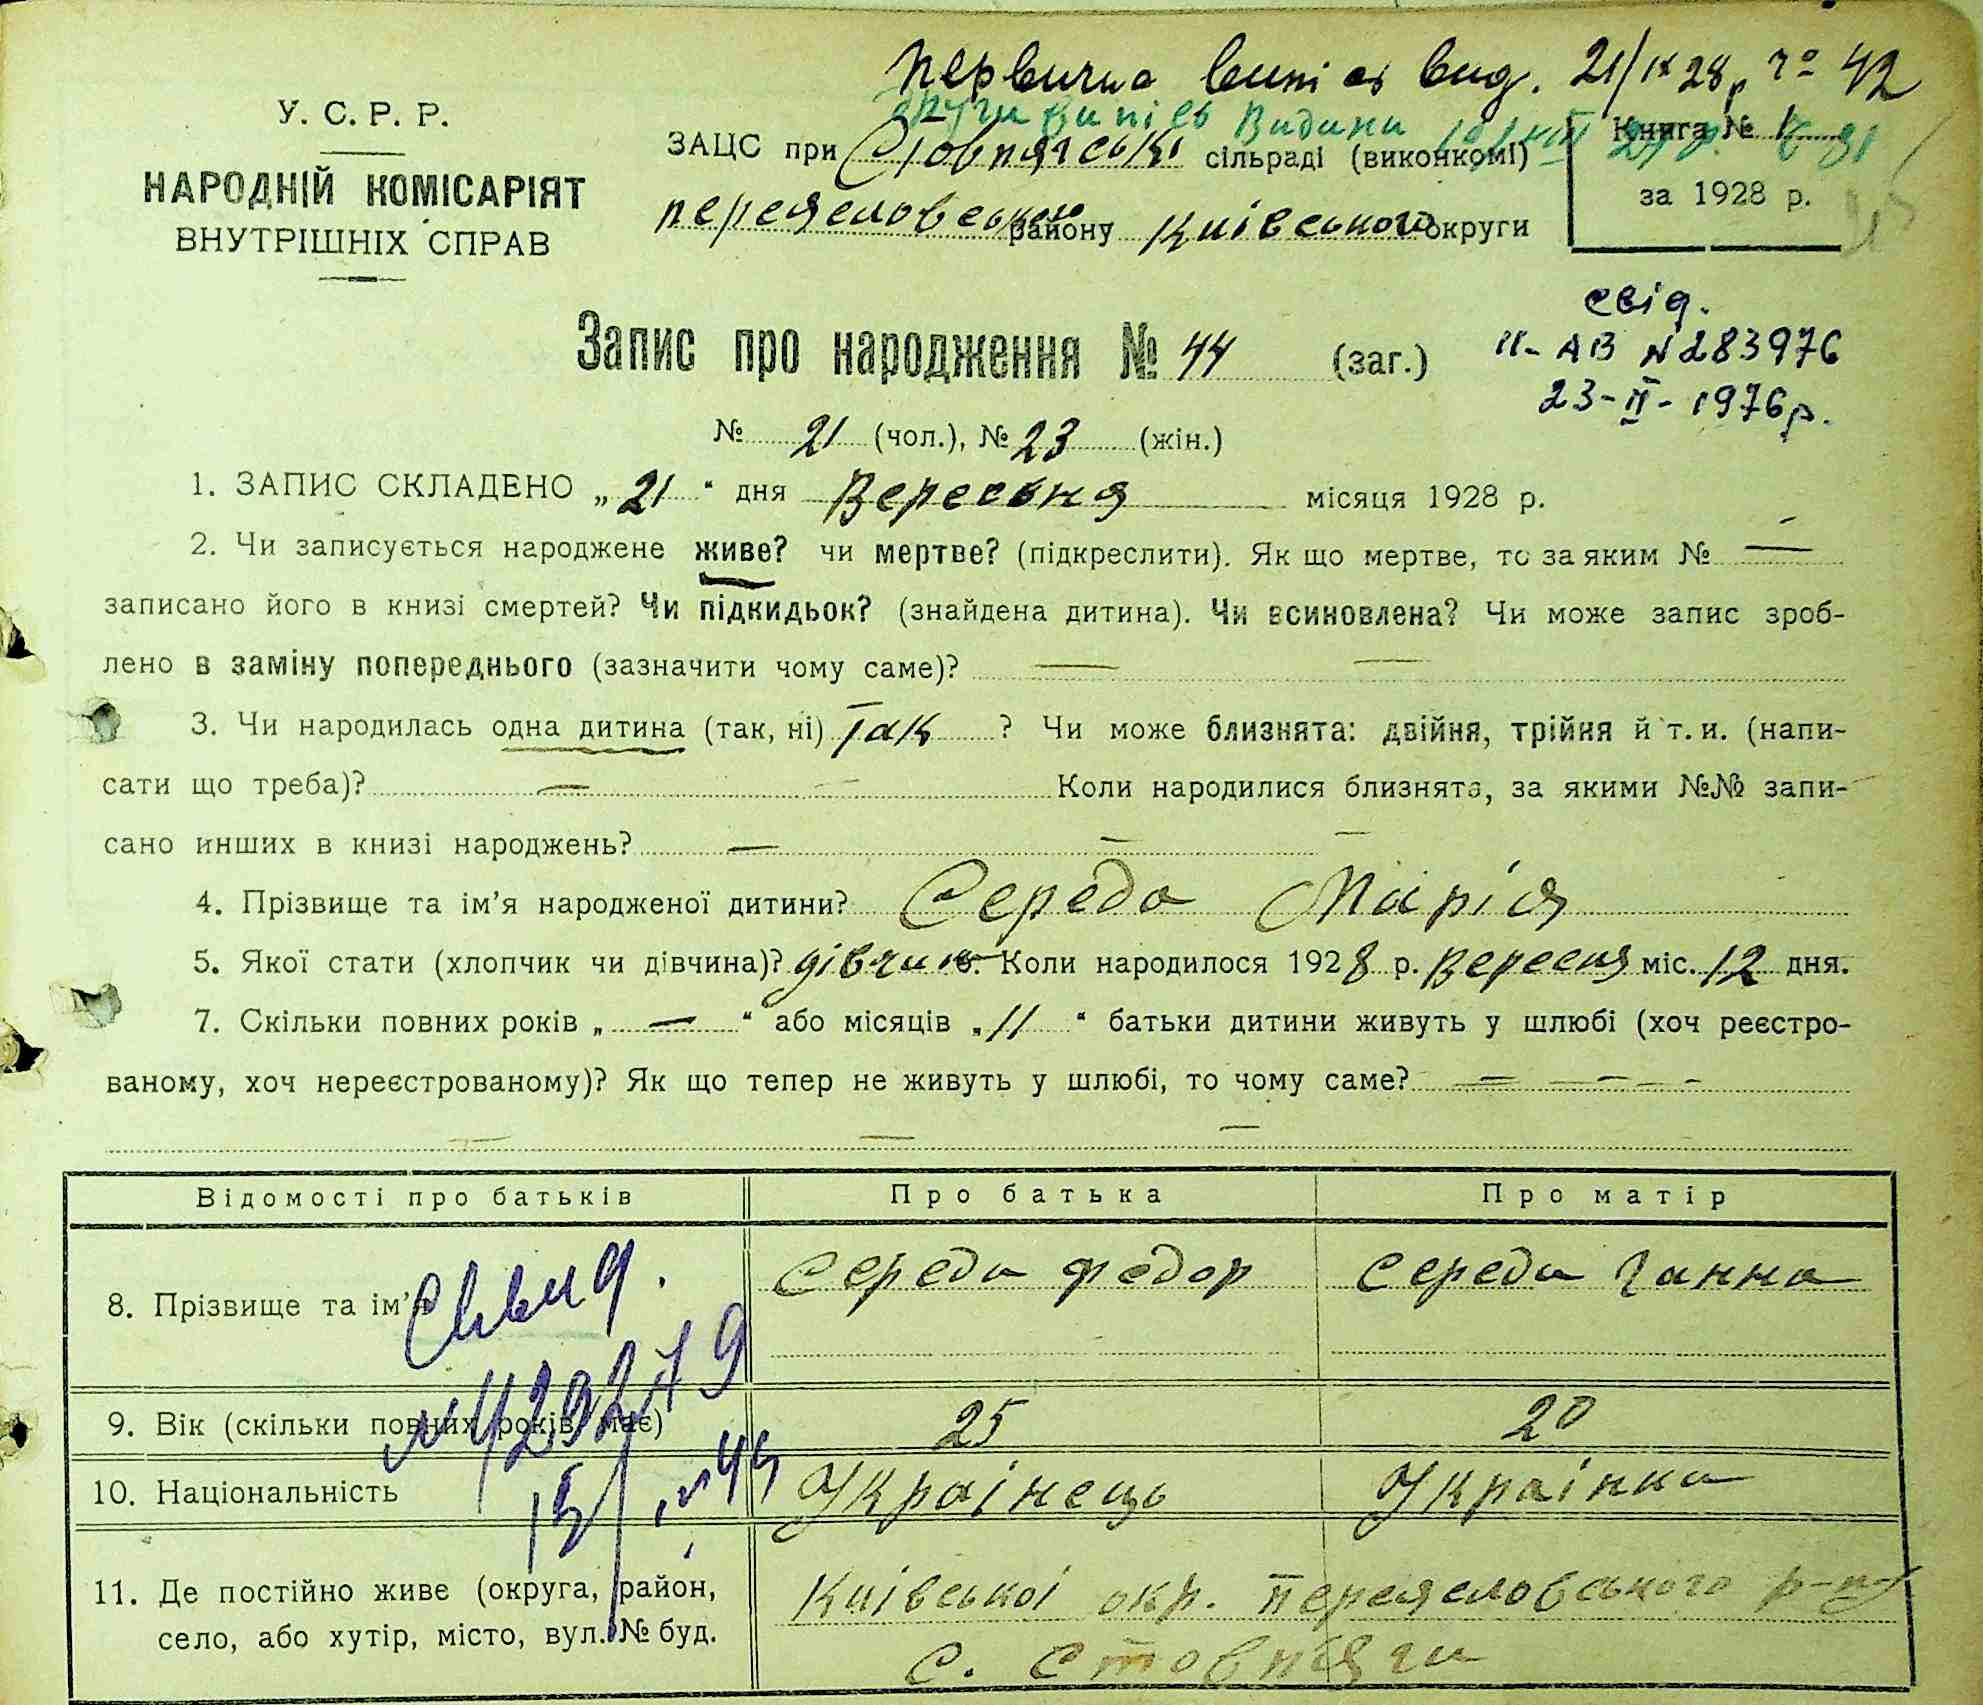 Первична випись вид. 21/IX 28 р. № 42
други випісь Видани
У. С. Р. Р.
НАРОДНІЙ КОМІСАРІЯТ
ВНУТРІШНІХ СПРАВ
ЗАЦС при Стовпяські сільраді (виконкомі)
переяславського району Київського округи
Книга № 1
за 1928 р.
свід.
II-АВ № 283976
23-II-1976р.
Запис про народження № 44 (заг.)
№ 21 (чол.), № 23 (жін.)
1. ЗАПИС СКЛАДЕНО „ 21 “ дня Вересьня місяця 1928 р.
2. Чи записується народжене живе? чи мертве? (підкреслити). Як що мертве, то за яким № —
записано його в книзі смертей? Чи підкидьок? (знайдена дитина). Чи всиновлена? Чи може запис зроб-
лено в заміну попереднього (зазначити чому саме)? — —
3. Чи народилась одна дитина (так, ні) Так ? Чи може близнята: двійня, трійня й т. и. (напи-
сати що треба)? — Коли народилися близнята, за якими №№ запи-
сано инших в книзі народжень? — — —
4. Прізвище та ім’я народженої дитини? Середа Марія
5. Якої стати (хлопчик чи дівчина)? дівчина 6. Коли народилося 1928 р. Вересня міс. 12 дня.
7. Скільки повних років „ — “ або місяців „ 11 “ батьки дитини живуть у шлюбі (хоч реєстро-
ваному, хоч нереєстрованому)? Як що тепер не живуть у шлюбі, то чому саме? — — — —
— — —
Відомості про батьків Про батька Про матір
8. Прізвище та ім’я Середа Федор Середа Ганна
Свид.
9. Вік (скільки повних років має) 25 20
10. Національність Українець Українка
11. Де постійно живе (округа, район,
село, або хутір, місто, вул. № буд.
Київської окр. переяславського р-ну
с. Стовпяги